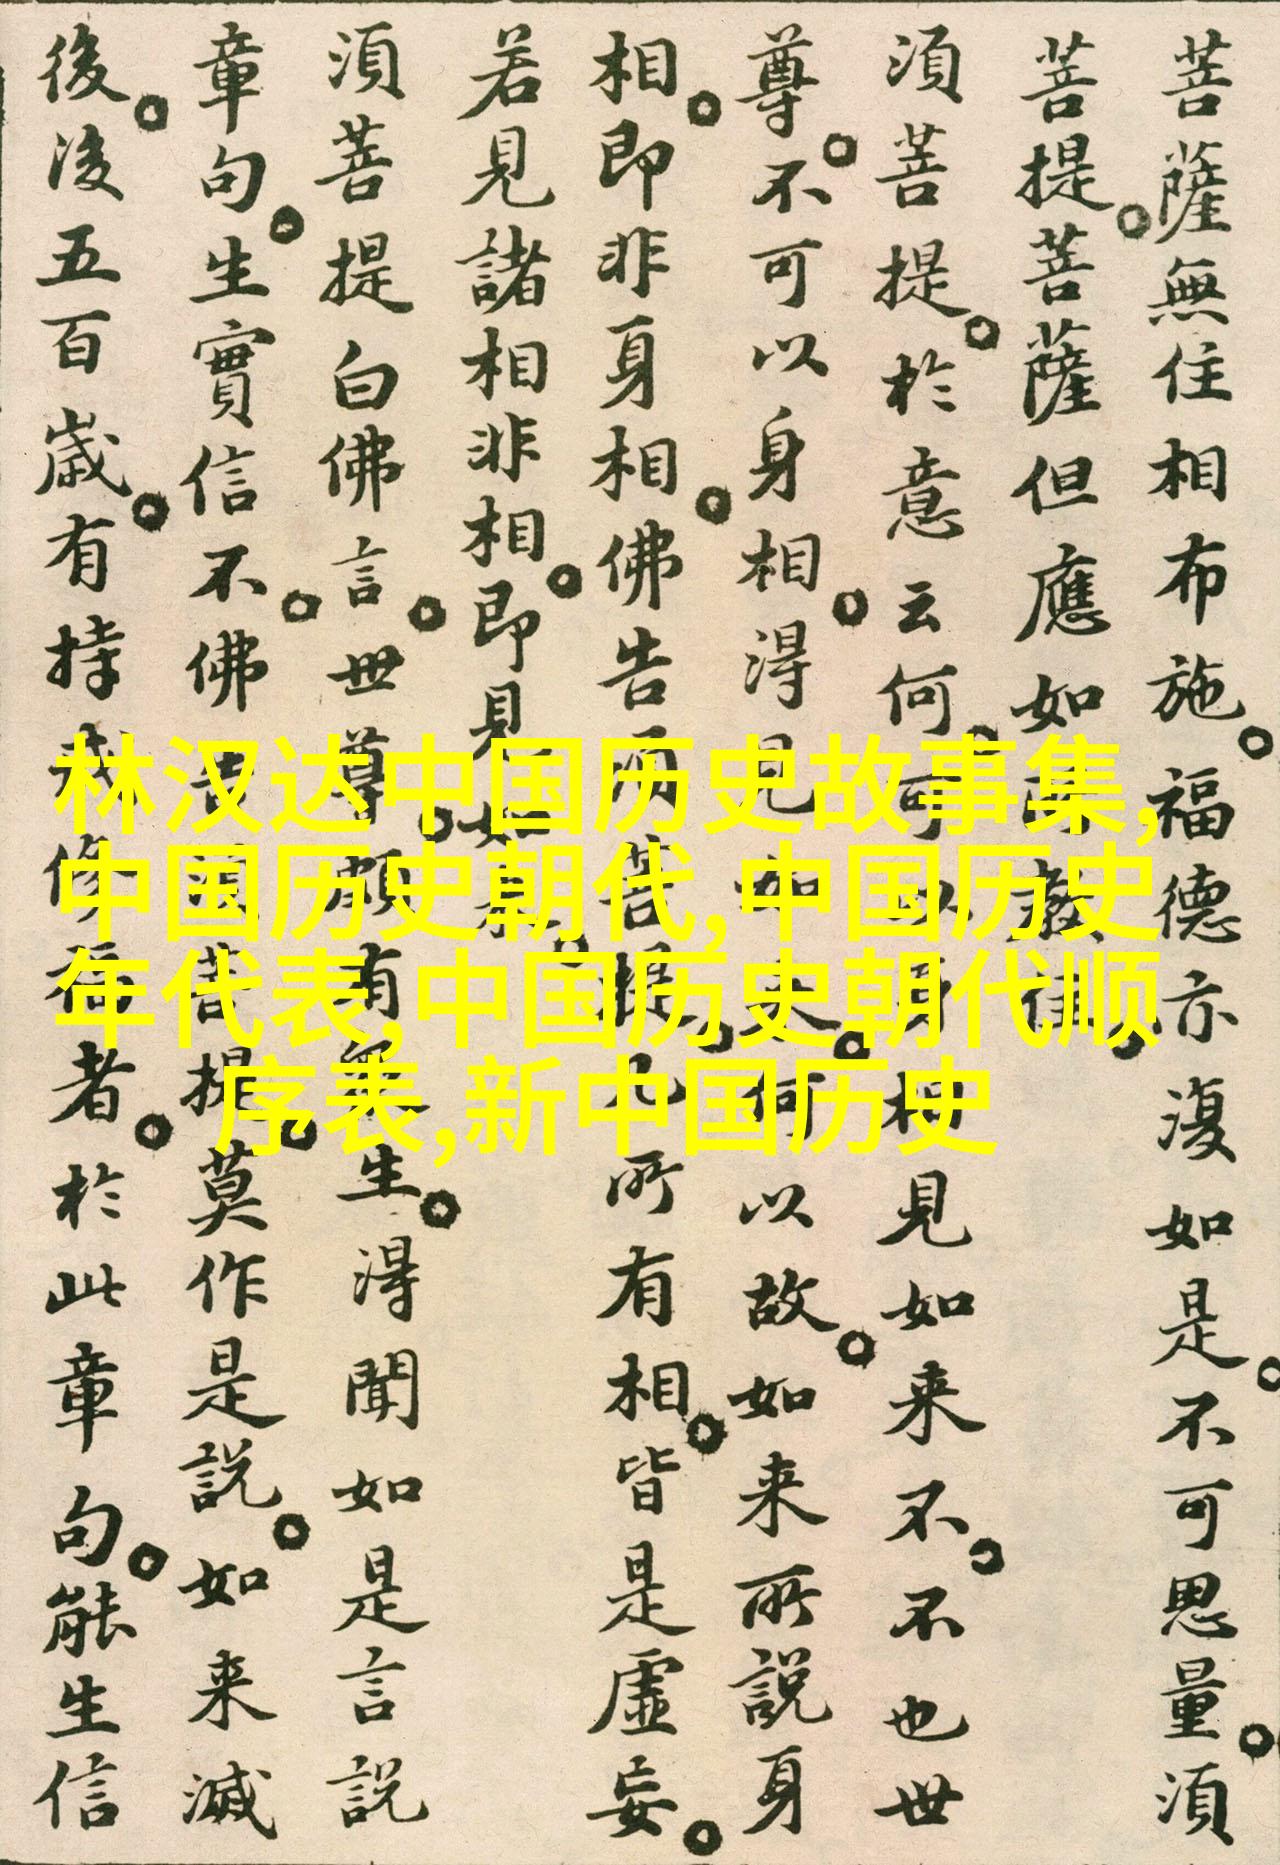 菩薩無住相布施。福德亦復如是。不可思量。須
菩提。菩薩但應如所教住。
須菩提。於意云何。可以身相見如来不。不也世
尊。不可以身相。得見如来。何以故。如来所說身
相。即非身相。佛告須菩提。凡所有相。皆是虛妄。
若見諸相非相。即見如来。
須菩提白佛言。世尊。頗有眾生。得聞如是言說
章句。生實信不。佛告須菩提。莫作是說。如来滅
後。後五百歲。有持戒修福者。於此章句。能生信
林汉达中国历史故事集,
中国历史朝代,中国历史
年代表,中国历史朝代顺
序表,新中国历史